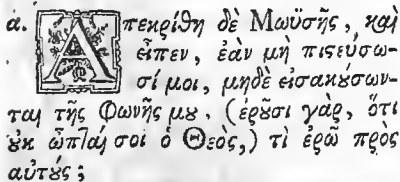 ά. Ἀπεκρίθη δὲ Μωϋσῆς, καὶ
εἶπεν, ἐὰν μὴ πιςεύσω-
σί μοι, μηδὲ εἰσακȣ́σων-
ται τῆς Φωνῆς μȣ. (ἐρȣ͂σι γὰρ, ὅτι
ȣ̓κ ὦπται σοι ὁ Θεὸς,) τὶ ἐρῶ πρὸς
αὐτȣ́ς;